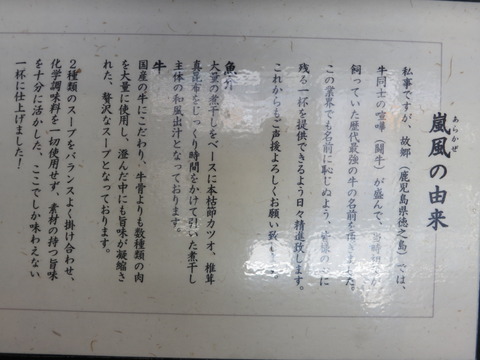 あらかぜ
嵐風の由来
私事ですが、故郷(鹿児島県徳之島)では、
牛同士の喧嘩(闘牛)が盛んで、
飼っていた歴代最強の牛の名前を
この業界でも名前に恥じぬよう、
残る一杯を提供できるよう日々精進致します。
これからもご声援よろしくお願い致
魚介
大量の煮干しをベースに本枯節カツオ、椎茸
真昆布をじっくり時間をかけて引いた煮干し
主体の和風出汁となっております。
牛
国産の牛にこだわり、牛骨よりも数種類の肉
を大量に使用し、澄んだ中にも旨味が凝縮さ
れた、贅沢なスープとなっております。
2種類のスープをバランスよく掛け合わせ、
化学調味料を一切使用せず、素材の持つ旨味
を十分に活かした、ここでしか味わえない
一杯に仕上げました!